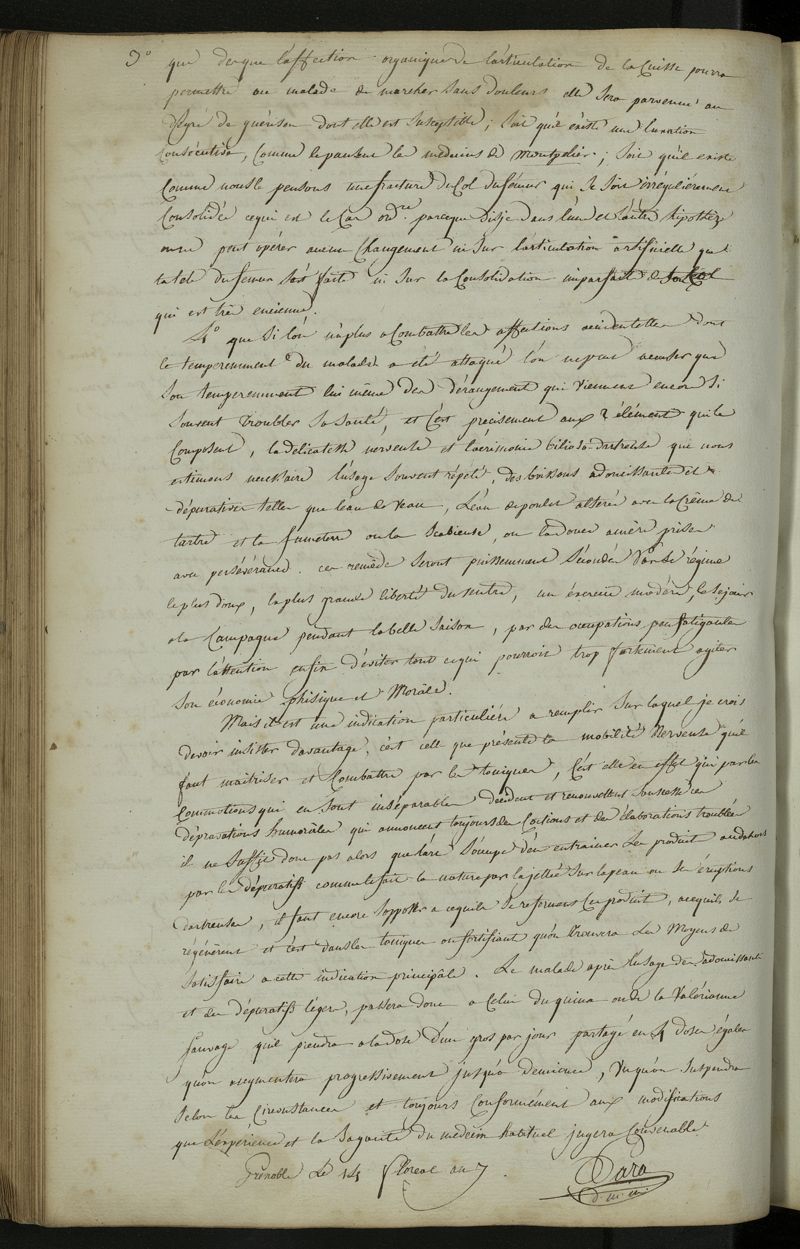 3° que des que l'affection organique de l'articulation de la Cuisse pourra
permettre au malade de marcher sans douleurs elle sera parvenue au
dégré de guérison dont elle est susceptible ; soit qu'il existe une luxation
Consécutive, Comme le pensent les medecins de Montpelier ; soit qu'il existe
Comme nous le pensons une fracture du Col du fémur qui se soit irrégulièrement
Consolidée ce qui est le Cas ord.re parceque dis-je dans l'une et l'autre hipothèze
on ne peut opérer aucun Changement ni sur l'articulation artificielle que
la tête du femur s'est faite ni sur la Consolidation imparfaite de son Col
qui est très encienne.
4° que si l'on n'a plus a Combattre les affections accidentelles dont
le temperemment du malade a été attaqué l'on ne peut accuser que
son temperemment lui même des dérangement qui viennent encore si
souvent troubler sa santé, et C'est précisement aux 2 élément qui le
Composent, la délicatesse nerveuse et l'acrimonie bilioso-dartreuse que nous
estimons necessaire l'usage souvent répété, des boissons adoucissantes et
dépuratives telles que l'eau de veau, l'eau de poulet altérée avec la Crême de
tartre et la fumeterre ou la Scabieuse, ou la douce amère prises
avec persévérance. ces remèdes seront puissemment sécondés par le régime
le plus doux, la plus grande liberté du ventre, un éxercice modéré, le séjour
a la Campagne pendant la belle saison, par des occupations peu fatigantes
par l'attention enfin d'éviter tout ce qui pourroit trop fortement agiter
son économie phisique et Morâle.
Mais il est une indication particulière a remplir sur laquel je crois
devoir insister davantage, c'est celle que présente la mobilité Nerveuse qu'il
faut maitriser et Combattre par les toniques, C'est elle en effet qui par les
Commotions qui en sont inséparables décident et renouvellent sans cesse ces
dépravations humorâles qui annoncent toujours des Coctions et des élaborations troublées
il ne suffit donc pas alors que l'art s'occupe d'en entrainer les produit au dehors
par les dépuratifs comme le fait la nature par la jettée sur la peau ou les éruptions
dartreuses, il faut encore s'opposer a ce qu'il se reforment Ces produit, a ce qu'ils se
régénèrent et c'est dans les toniques ou fortifiant qu'on trouvera les Moyens de
satisfaire a cette indication principâle. Le malade après l'usage des adoucissants
et des dépuratifs légers, passera donc a Celui du quina ou de la Valérianne
Sauvage qu'il prendra a la dose d'un gros par jour partagé en 4 doses égales
qu'on augmentera progressivement jusqu'a demi once, qu'on suspendra
selon les Circonstances et toujours Conformément aux modifications
que l'éxpérience et la sagacité du medecin habituel jugera Convenable
Grénoble Le 14 floreal an 7.
Dara
d. m. m.